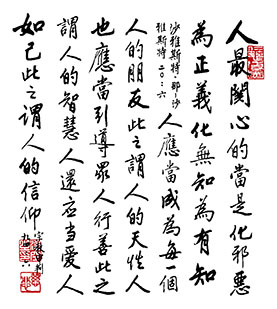 人最関心的當是化邪惡
為正義化無知為有知
沙雅斯特·那一沙
雅斯特二〇:六
人應當成為每一個
人的朋友此之謂人的天性人
也應當引導眾人行善此之
謂人的智慧人還应当愛人
如己此之謂人的信仰